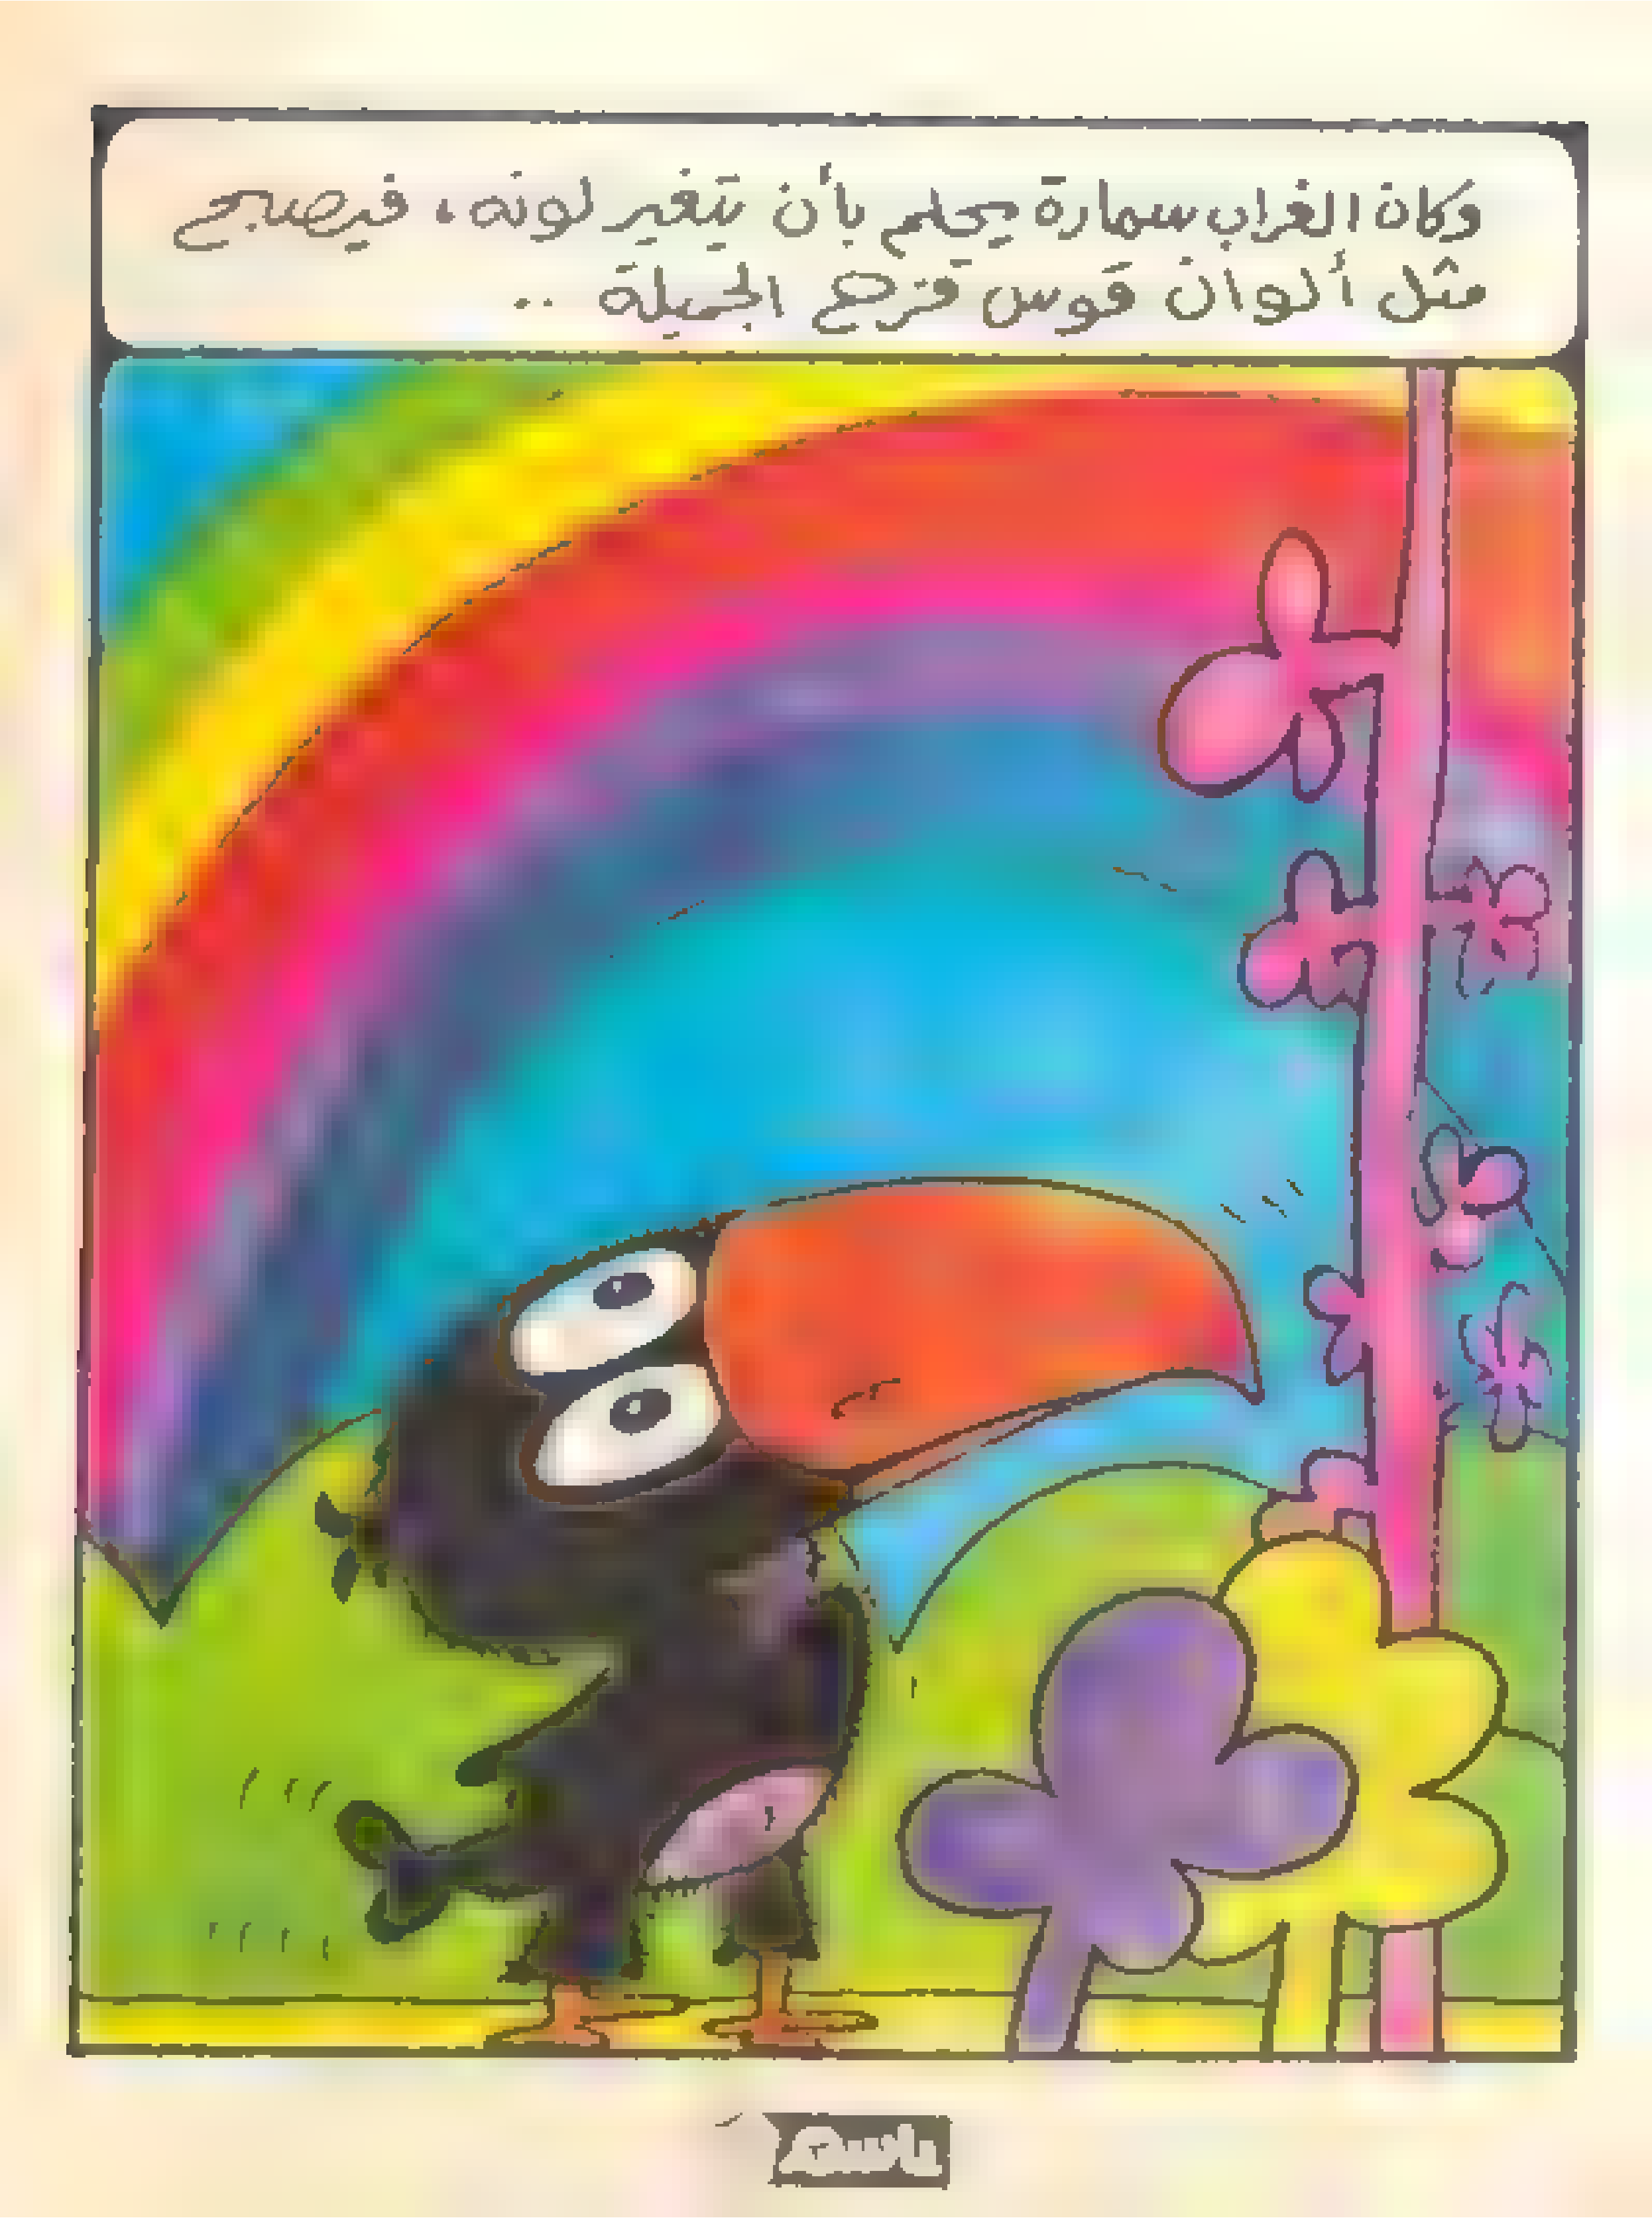 وكان الغراب سمارة يحلم بأن يتغير لونه، فيصبح
مثل ألوان قوس قزح الجميلة ..
باسم